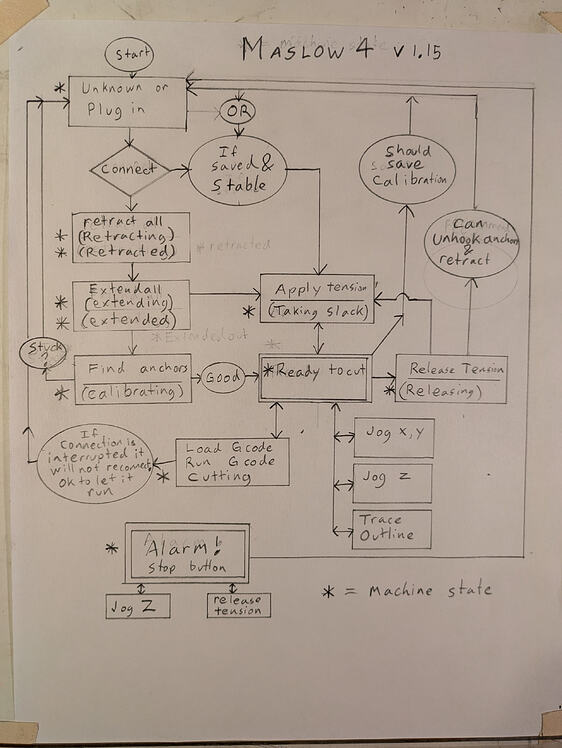 MASLOW 4 V 1.15
Start
* Unknown or
Plug in
OR
Connect
If
saved &
stable
Should
save
Calibration
Can
Unhook anchors
&
retract
retract all
* (Retracting)
* (Retracted)
* retracted
Extend all
* (extending)
* (extended)
* Extended out
Apply tension
* (Taking slack)
Stuck
?
Find anchors
* (Calibrating)
Good
* Ready to cut
Release Tension
* (Releasing)
If
Connection is
interrupted it
will not reconnect
ok to let it
run
Load Gcode
Run Gcode
* Cutting
Jog X,Y
Jog Z
Trace
Outline
* Alarm!
Stop button
Jog Z
release
tension
* = Machine state